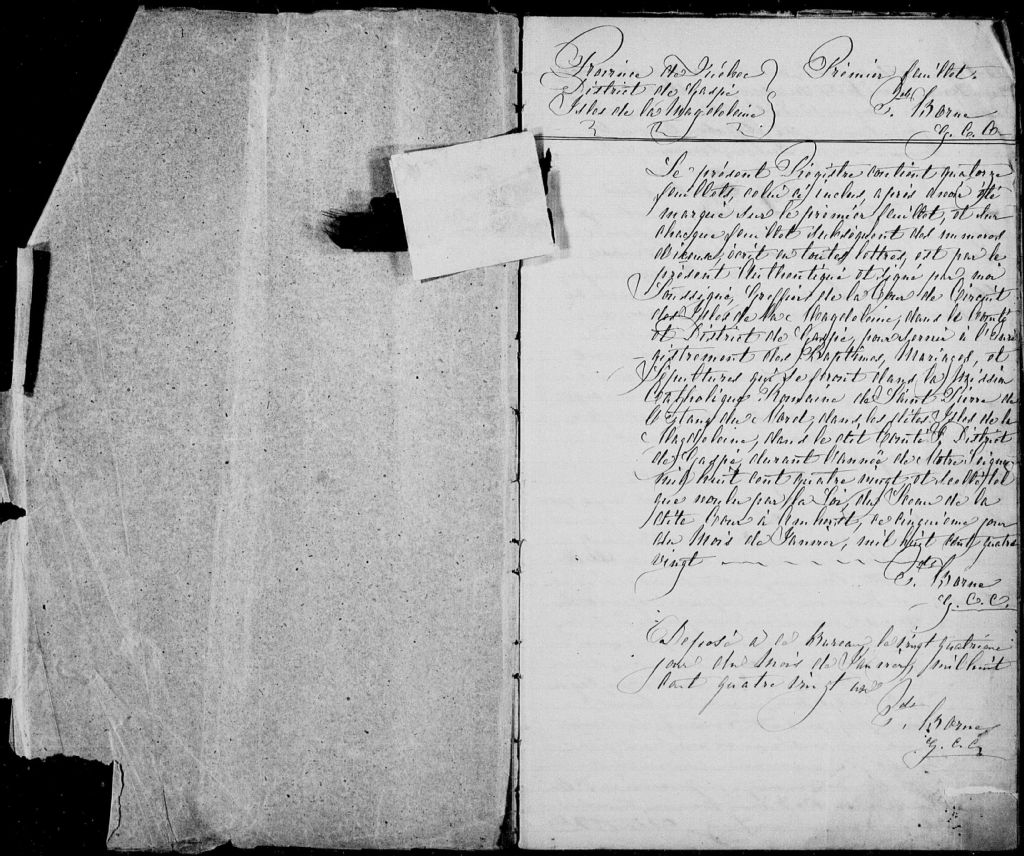 Province de Québec
District de Gaspé
Isles de la Magdeleine
Prémier feuillet.
Borne
G. C. C.
Le présent Régistre contient quatorze
feuillets, celui ci inclus, après avoir été
marqué sur le prémier feuillet, et sur
chaque feuillet subséquent des numeros
écrit en toutes lettres, est par le
présent Authentiqué et signé par moi
Soussigné, Greffier de la Cour de Circuit
des Isles de la Magdeleine, dans le Comté
et District de Gaspé, pour servir à l'Enré
gistrement des Baptêmes, Mariages, et
Sépultures qui se feront dans la Mission
Catholique Romaine de Saint Pierre de
l'Etang du Nord, dans les dites Isles de la
Magdeleine, dans le dit Comté & District
de Gaspé, durant l'année de Notre Seigneur
mil huit cent quatre vingt et tel
que voulu par la Loi, du Sceau de la
dite Cour à Amherst, ce cinquième jour
du Mois de Janvier, mil huit cent quatre
vingt
Borne
G. C. C.
Déposé à ce Bureau le vingt quatrième
jour du Mois de Janvier mil huit
cent quatre vingt un
Borne
G. C. C.